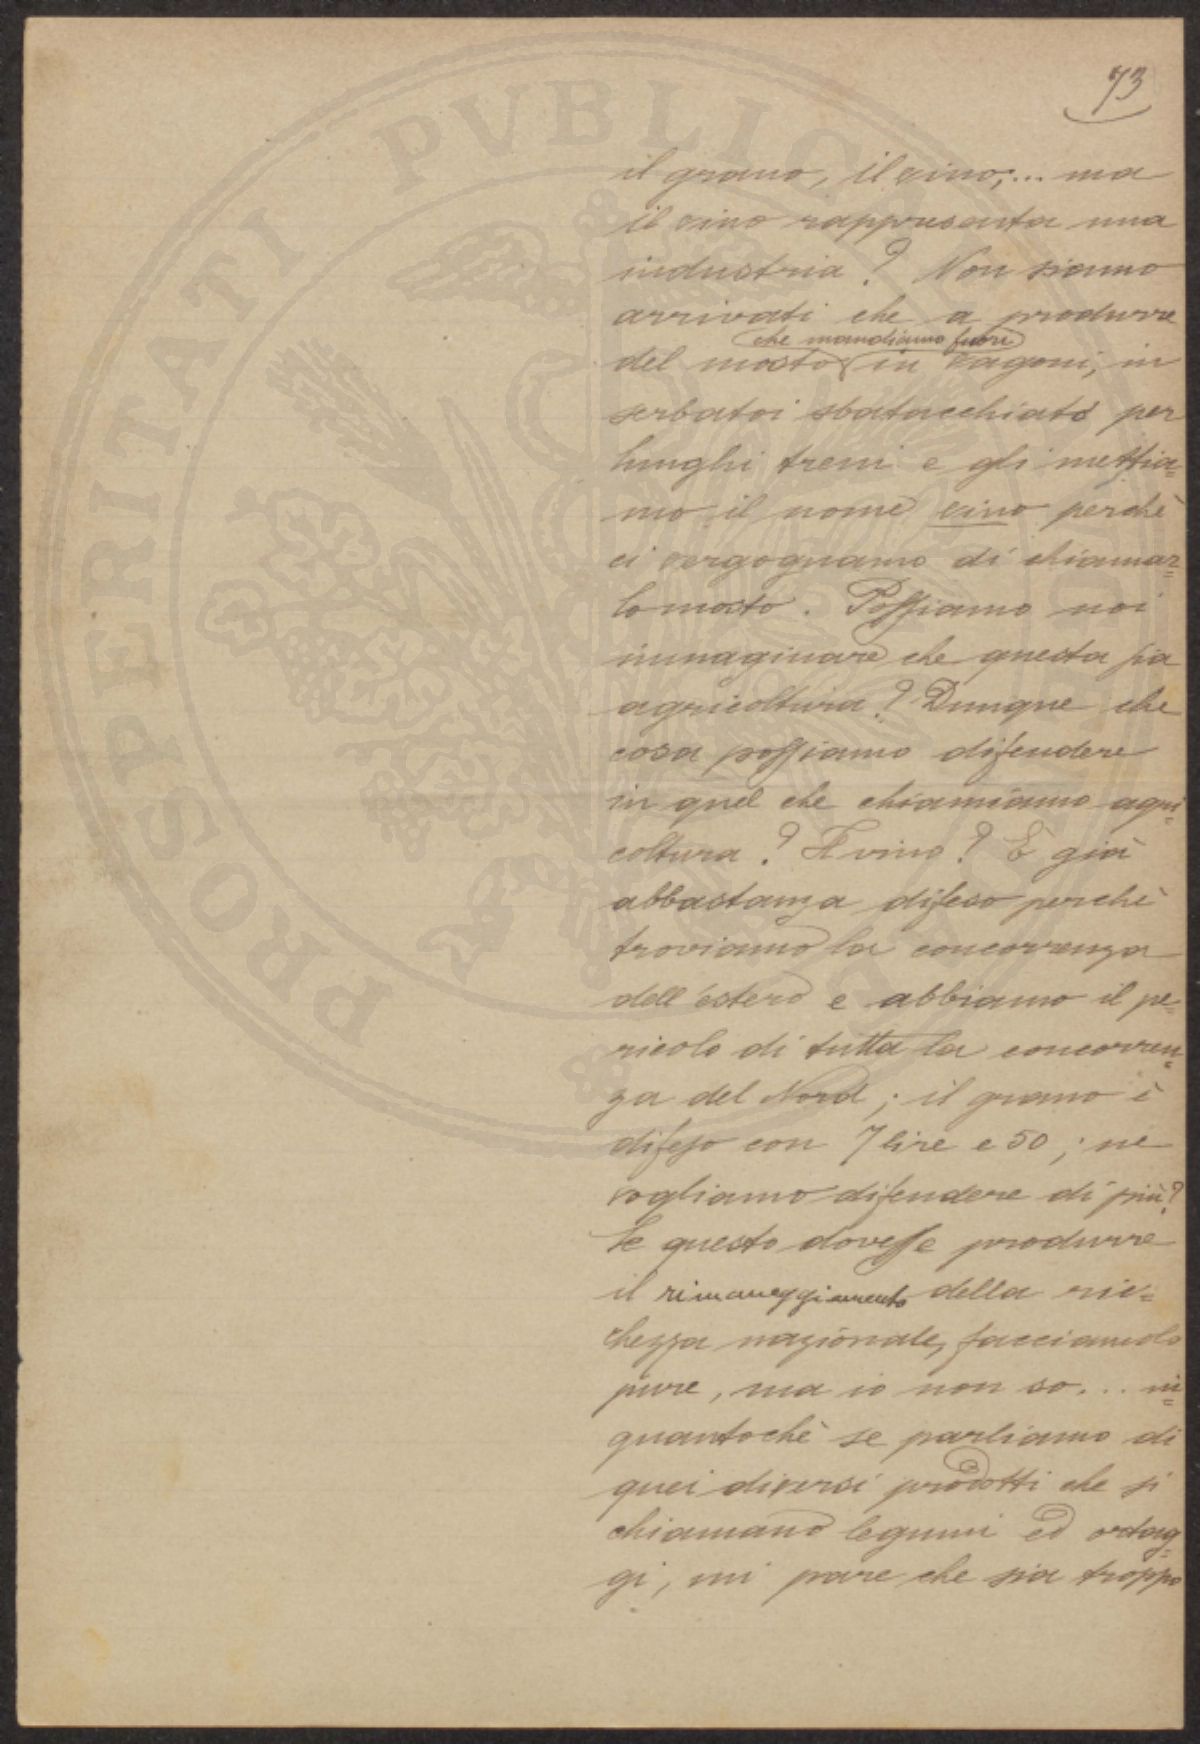 73
il grano, il vino;... ma
il vino rappresenta una
industria? Non siamo
arrivati che a produrre
che mandiamo fuori
del mosto in vagoni, in
serbatoi sbatacchiato per
lunghi treni e gli mettia=
mo il nome vino perchè
ci vergogniamo di chiamar=
lo mosto. Possiamo noi
immaginare che questa sia
agricoltura? Dunque che
cosa possiamo difendere
in quel che chiamiamo agri=
coltura? Il vino? È già
abbastanza difeso perchè
troviamo la concorrenza
dell'estero e abbiamo il pe=
ricolo di tutta la concorren=
za del Nord; il grano è
difeso con 7 lire e 50; ne
vogliamo difendere di più?
Se questo dovesse produrre
il rimaneggiamento della ric=
chezza nazionale, facciamolo
pure, ma io non so... in=
quantochè se parliamo di
quei diversi prodotti che si
chiamano legumi ed ortag=
gi, mi pare che sia troppo
PROSPERITATI PUBLICAE